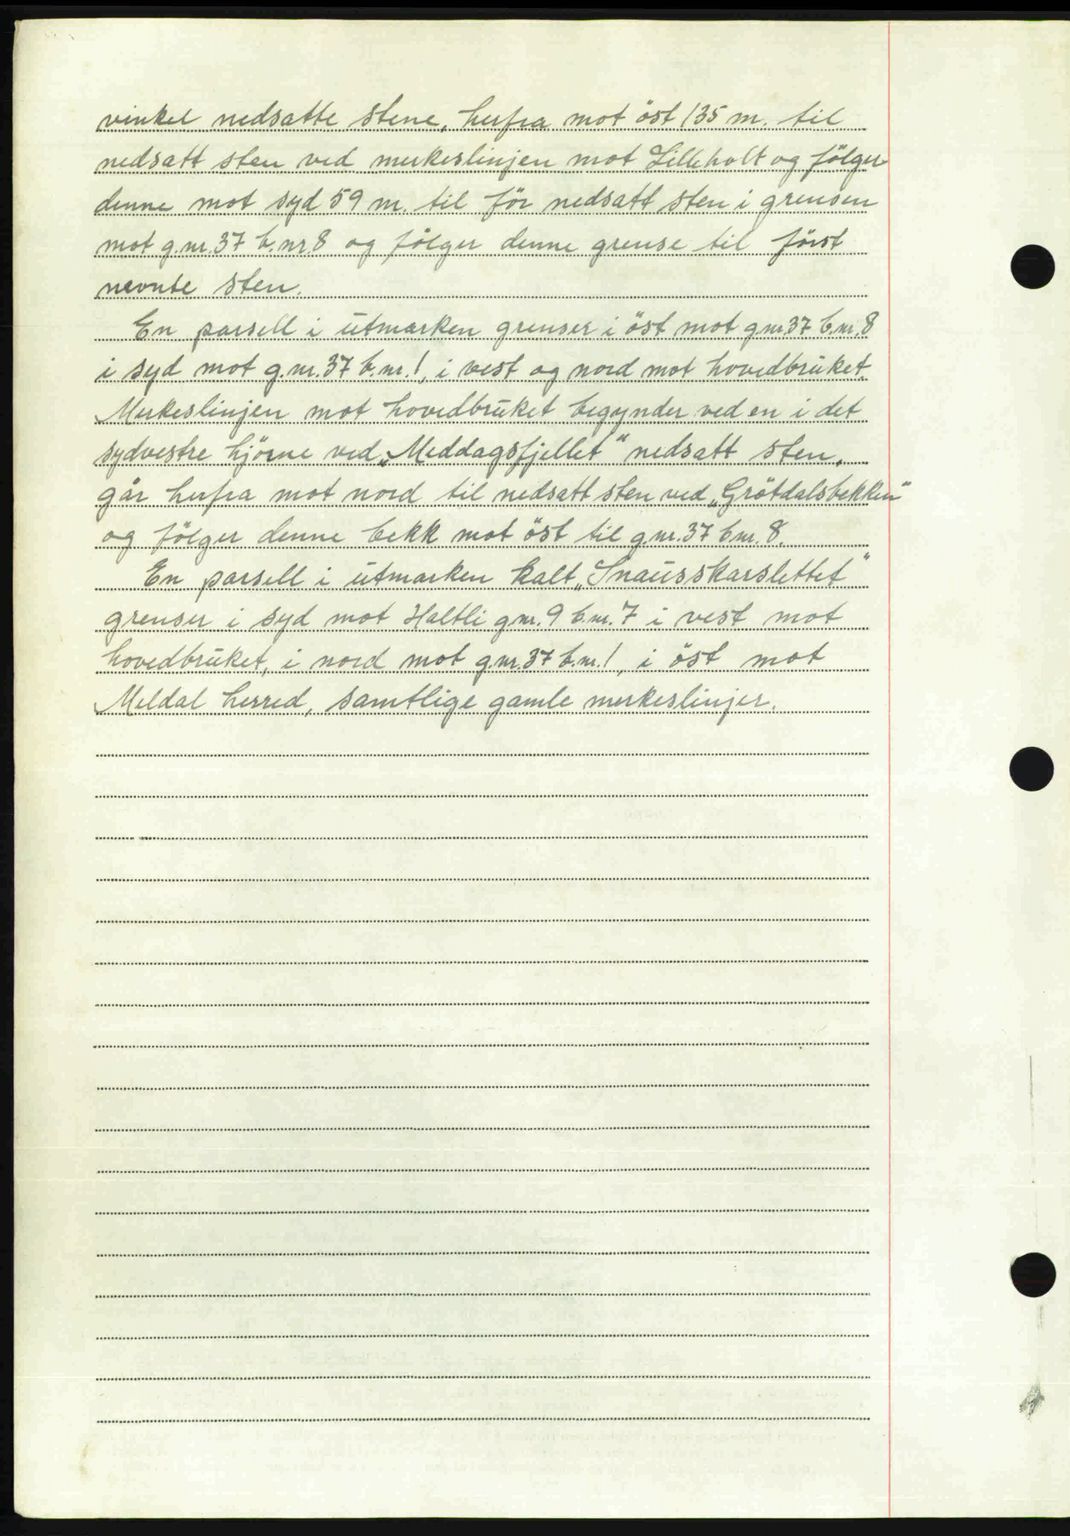 vinkel nedsatte stene, herfra mot öst 135 m. til
nedsatt sten ved merkeslinjen mot Lilleholt og fölger
denne mot syd 59 m. til för nedsatt sten i grensen
mot g.nr. 37 b.nr 8 og fölger denne grense til först
nevnte sten.
En parsell i utmarken grenser i öst mot g.nr. 37 b.nr. 8
i syd mot g.nr. 37 b.nr. 1, i vest og nord mot hovedbruket.
Merkeslinjen mot hovedbruket begynder ved en i det
sydvestre hjörne ved „Meddagsfjellet" nedsatt sten,
går herfra mot nord til nedsatt sten ved „Grötdalsbekken"
og fölger denne bekk mot öst til g.nr. 37 b.nr. 8.
En parsell i utmarken kalt „Snausskarslettet"
grenser i syd mot Haltli g.nr. 9 b.nr. 7 i vest mot
hovedbruket, i nord mot g.nr. 37 b.nr. 1, i öst mot
Meldal herred, samtlige gamle merkeslinjer.